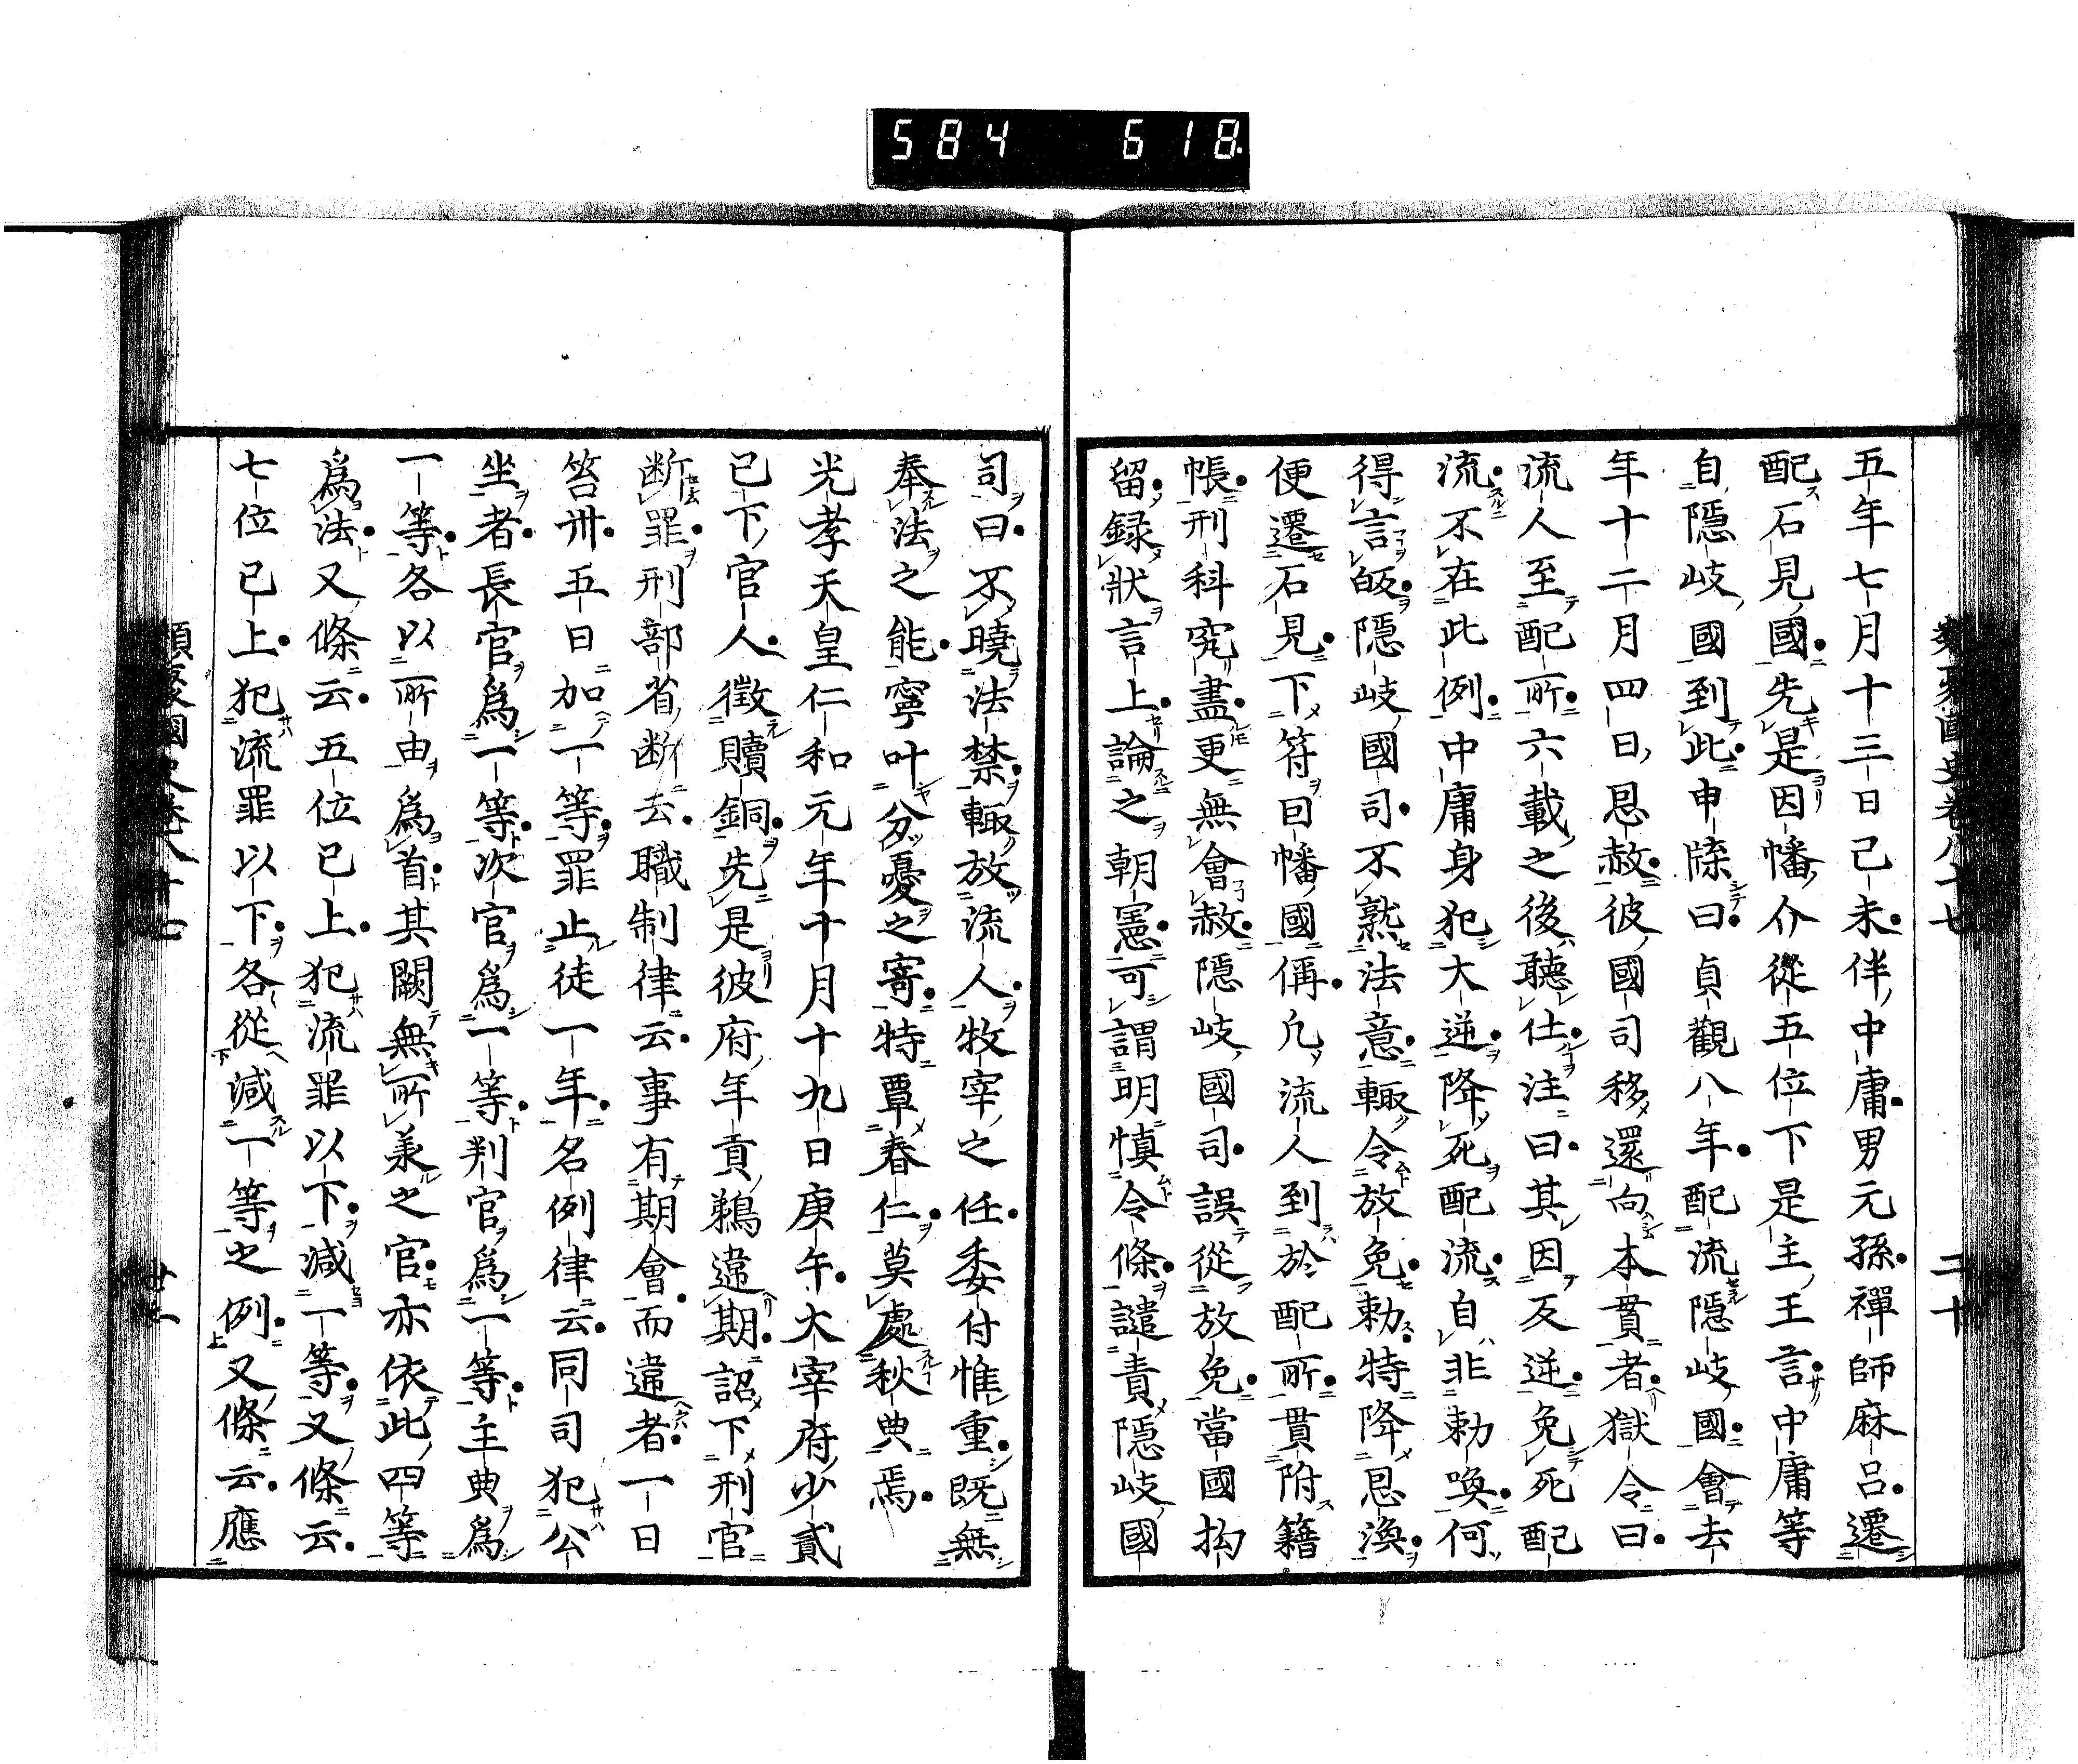 584 618
五年七月十三日己未伴中庸男元孫禪師麻呂遷
配石見國先是因幡介從五位下是主王言中庸等
自隱岐國到此申牒曰貞觀八年配流隱岐國會去
年十二月四日恩赦彼國司移還向本貫者獄令曰
流人至配所六載之後聽仕注曰其因反逆免死配
流不在此例中庸身犯大逆降死配流自非勅喚何
得言皈隱岐國司不熟法意輙令放免勅特降恩渙
便遷石見下符因幡國偁凡流人到於配所貫附籍
帳刑科究盡更無會赦隱岐國司誤從放免當國拘
留録狀言上論之朝憲可謂明慎令條譴責隱岐國
司曰不曉法禁輙放流人牧宰之任委付惟重既無
奉法之能寧叶分憂之寄特覃春仁莫處秋典焉
光孝天皇仁和元年十月十九日庚午大宰府少貳
已下官人徵贖銅先是彼府年貢鵜違期詔下刑官
断罪刑部省断云職制律云事有期會而違者一日
笞卅五日加一等罪止徒一年名例律云同司犯公
坐者長官爲一等次官爲一等判官爲一等主典爲
一等各以所由爲首其闕無所承之官亦依此四等
爲法又條云五位已上犯流罪以下減一等又條云
七位已上犯流罪以下各從減一等之例又條云應
類聚國史卷八十七
二十
類聚國史卷八十七
廿一